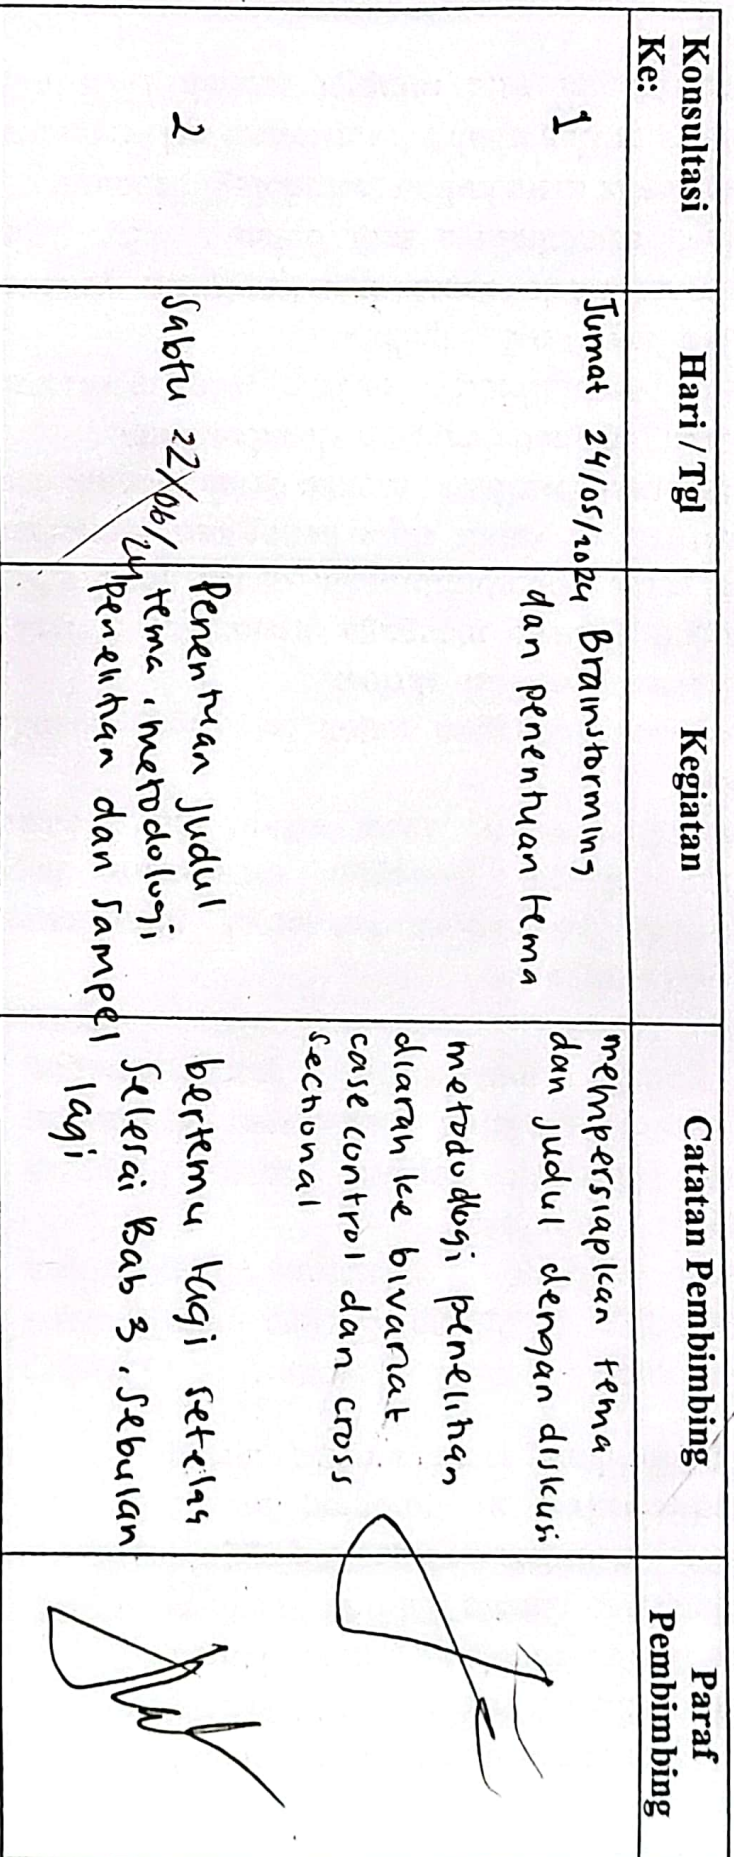 Konsultasi
Ke:
Hari / Tgl
Kegiatan
Catatan Pembimbing
Paraf
Pembimbing
1
Jumat 24/05/2024
Brainstorming
dan penentuan tema
mempersiapkan tema
dan judul dengan diskusi
metodologi penelitian
diarah ke bivariat
case control dan cross
sectional
2
Sabtu 22/06/24
Penentuan judul
tema, metodologi
penelitian dan sampel
bertemu lagi setelah
selesai Bab 3. Sebulan
lagi